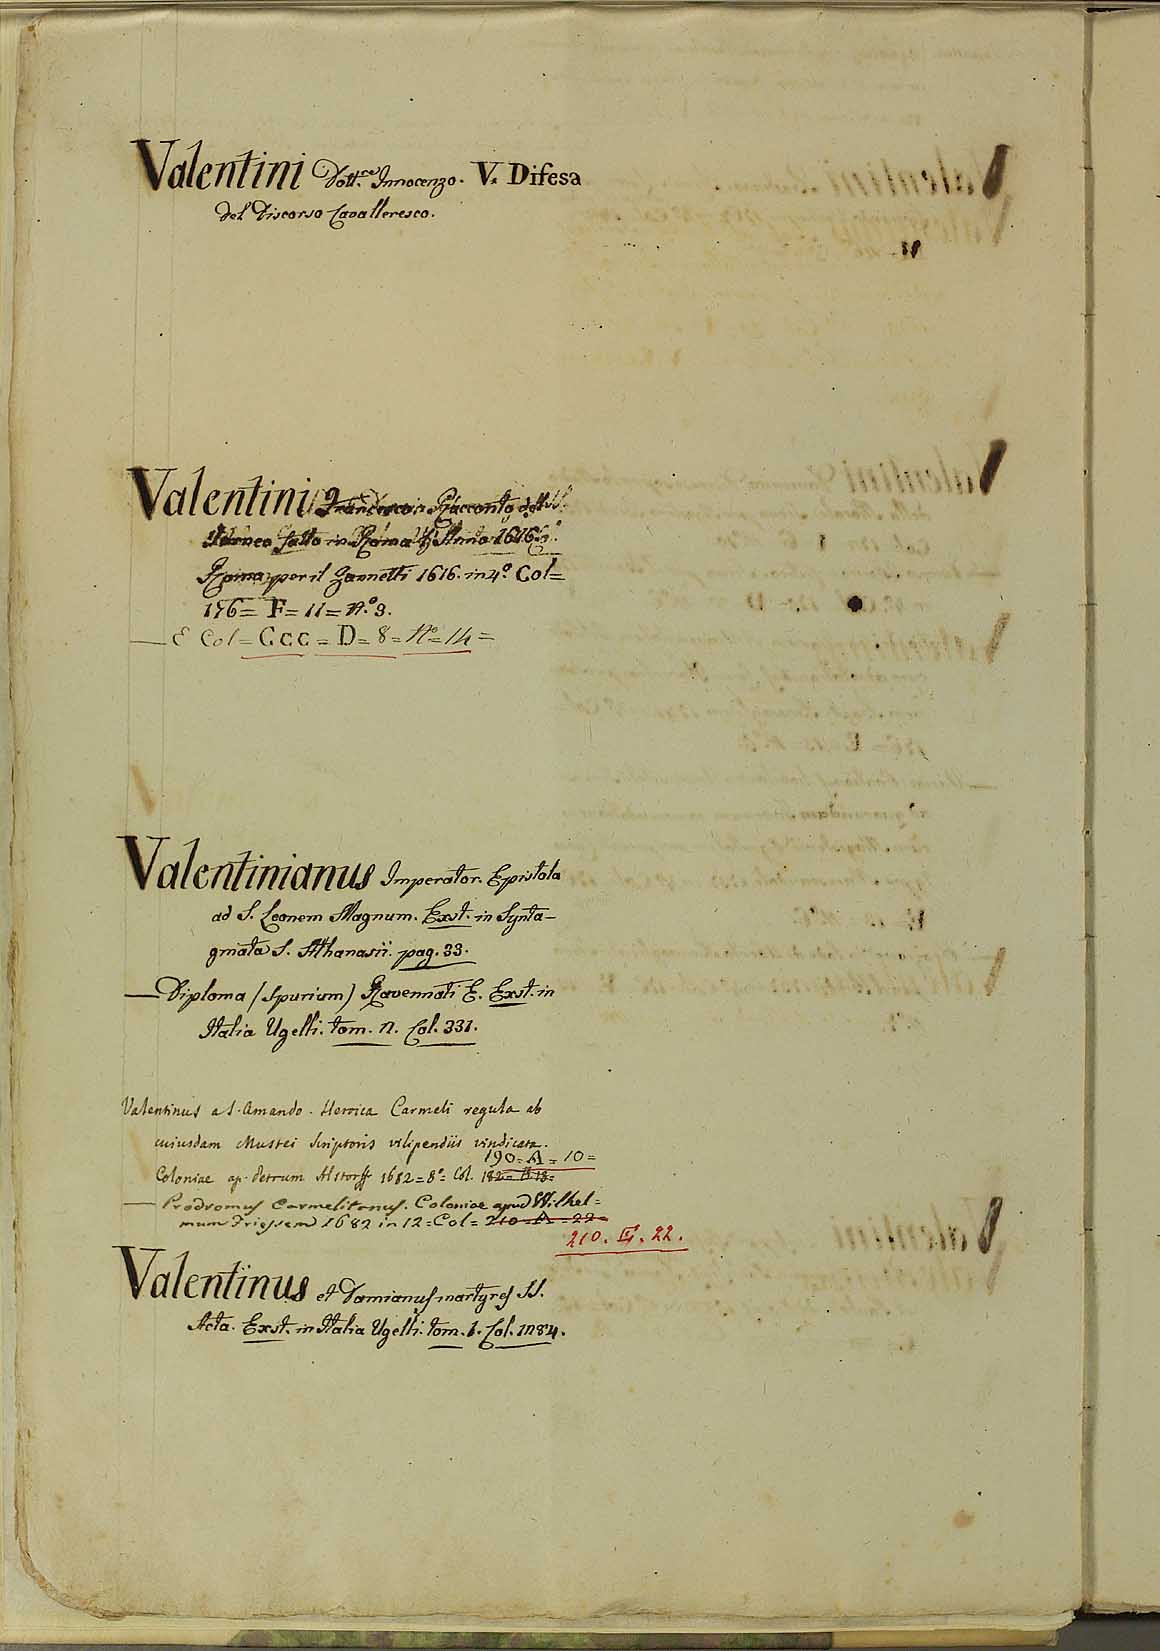 Valentini Dott.re Innocenzo. V. Difesa
del Discorso Cavalleresco.
Valentini Francesco. Racconto del
Torneo fatto in Roma l'Anno 1616.
Roma per il Zannetti 1616. in 4.° Col=
176= F= 11= N.° 3.
— E Col= CCC = D= 8= N.°= 14=
Valentinianus Imperator. Epistola
ad S. Leonem Magnum. Exst. in Synta-
gmata S. Athanasii. pag. 33.
— Diploma (Spurium) Ravennati E. Exst. in
Italia Ugelli. tom. 2. Col. 331.
Valentinus a S. Amando. Heroica Carmeli regula ab
cuiusdam Mustei Scriptoris vilipendiis vindicata.
190= A = 10=
Coloniae ap. Petrum Alstorff 1682= 8°= Col.
— Prodromus Carmelitanus. Coloniae apud Wilhel=
mum Friessem 1682 in 12= Col= 210= A = 22=
210. G. 22.
Valentinus et Damianus martyres SS.
Acta. Exst. in Italia Ugelli. tom. 1. Col. 1284.